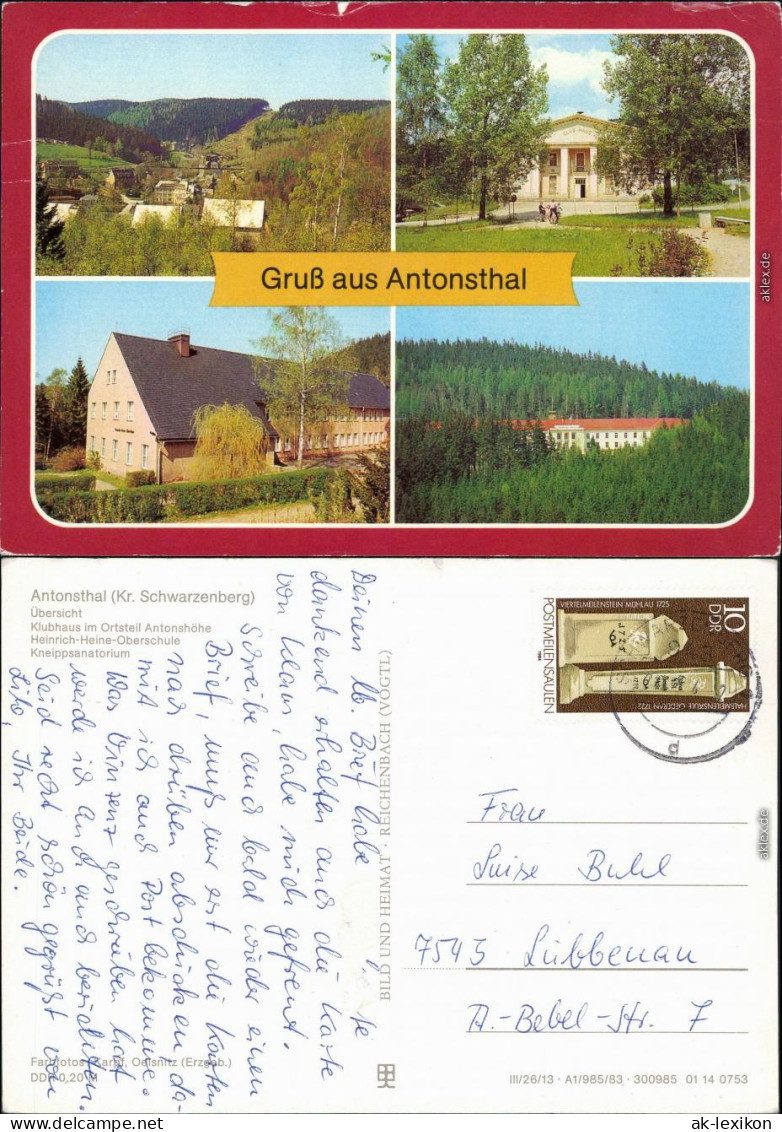 Gruß aus Antonsthal
aklex.de
Antonsthal (Kr. Schwarzenberg)
Übersicht
Klubhaus im Ortsteil Antonshöhe
Heinrich-Heine-Oberschule
Kneippsanatorium
Deinen lb. Brief habe
dankend erhalten auch die Karte
von Klaus, habe mich gefreut.
Schreibe auch bald wieder einen
Brief, muß nur erst die Karten
nach drüben abschicken da-
mit ich auch Post bekomme.
Was Vinzenz geschrieben hat
werde ich auch noch berichten.
Seid recht schön gegrüßt von
Ihr Beide.
BILD UND HEIMAT · REICHENBACH (VOGTL)
VIERTELMEILENSTEIN MÜHLAU 1725
10
DDR
POSTMEILENSÄULEN
HALBMEILENSÄULE OEDERAN 1722
Frau
Luise Buhl
7543 Lübbenau
A.-Bebel-Str. 7
aklex.de
Farbfotos: Karpf, Oelsnitz (Erzgeb.)
DDR 0,20 M
III/26/13 · A1/985/83 · 300985 01 14 0753
ak-lexikon